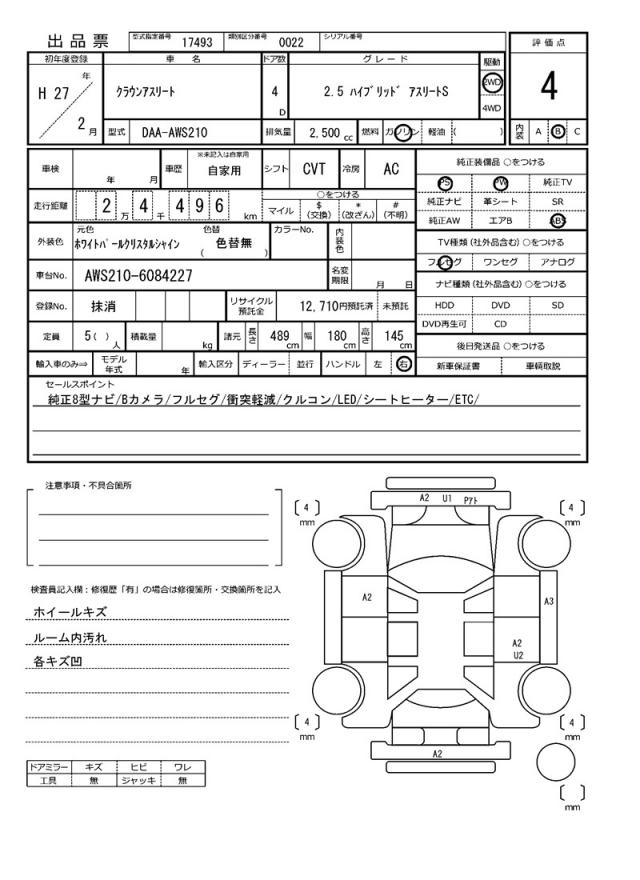 出品票 型式指定番号 17493 類別区分番号 0022 シリアル番号
評価点
4
内装 A B C
初年度登録 車名 ドア数 グレード 駆動
H 27 年 2 月
クラウンアスリート
4 D
2.5 ハイブリッド アスリートS
2WD
4WD
型式 DAA-AWS210 排気量 2,500 cc 燃料 ガソリン 軽油 ( )
車検 年 月 車歴 ※未記入は自家用 自家用 シフト CVT 冷房 AC
走行距離 2 万 4 千 4 9 6 km
○をつける
マイル $ (交換) * (改ざん) # (不明)
外装色 元色 ホワイトパールクリスタルシャイン 色替 ( 色替無 ) カラーNo. 内装色
車台No. AWS210-6084227 名変期限 月 日
登録No. 抹消 リサイクル預託金 12,710円預託済 未預託
定員 5 ( ) 人 積載量 kg 諸元 長さ 489 cm 幅 180 cm 高さ 145 cm
輸入車のみ⇒ モデル年式 年 輸入区分 ディーラー 並行 ハンドル 左 右
純正装備品 ○をつける
PS PW 純正TV
純正ナビ 革シート SR
純正AW エアB ABS
TV種類 (社外品含む) ○をつける
フルセグ ワンセグ アナログ
ナビ種類 (社外品含む) ○をつける
HDD DVD SD
DVD再生可 CD
後日発送品 ○をつける
新車保証書 車輌取説
セールスポイント
純正8型ナビ/Bカメラ/フルセグ/衝突軽減/クルコン/LED/シートヒーター/ETC/
注意事項・不具合箇所
検査員記入欄：修復歴「有」の場合は修復箇所・交換箇所を記入
ホイールキズ
ルーム内汚れ
各キズ凹
ドアミラー キズ ヒビ ワレ
工具 無 ジャッキ 無
A2 U1 Pアト
[ 4 ] mm
[ 4 ] mm
A2
A3
A2
U2
[ 4 ] mm
[ 4 ] mm
A2
[ ] mm